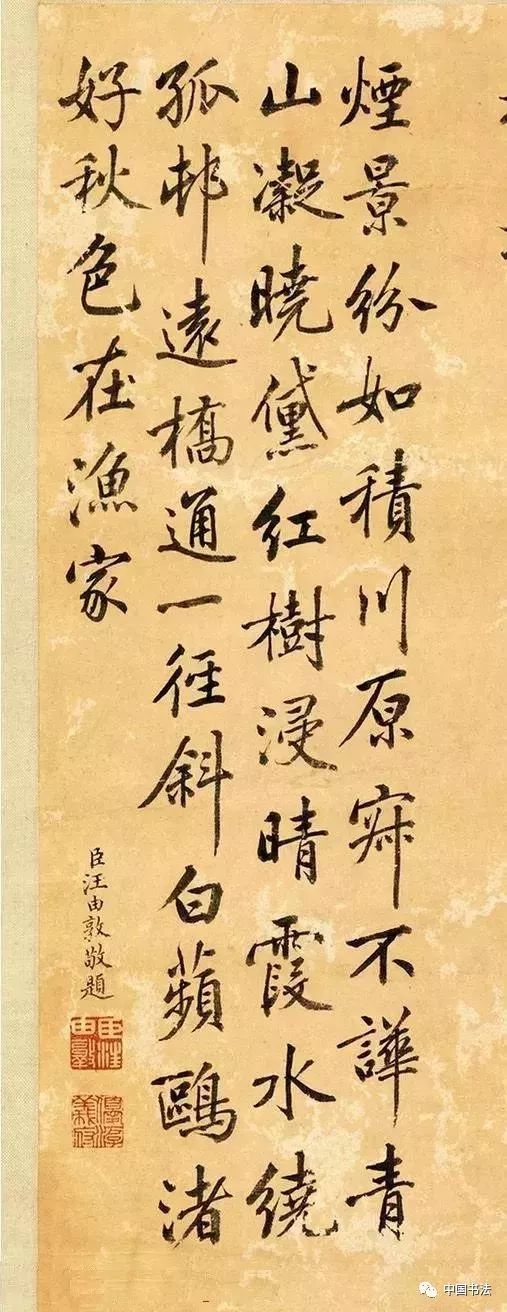 煙景紛如積川原寂不譁青
山凝曉黛紅樹浸晴霞水繞
孤邨遠橋通一徑斜白蘋鷗渚
好秋色在漁家
臣汪由敦敬題
中国书法